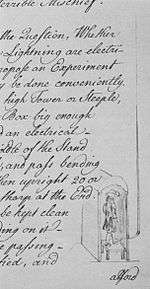 errible Mischief.
the Question, Whether
Lightning are electri-
opose an Experiment
y be done conveniently.
high Tower or Steeple,
Box big enough
d an electrical
iddle of the Stand
and pass bending
hen upright 20 or
sharp at the End.
be kept clean
ding on it
passing
fied, and